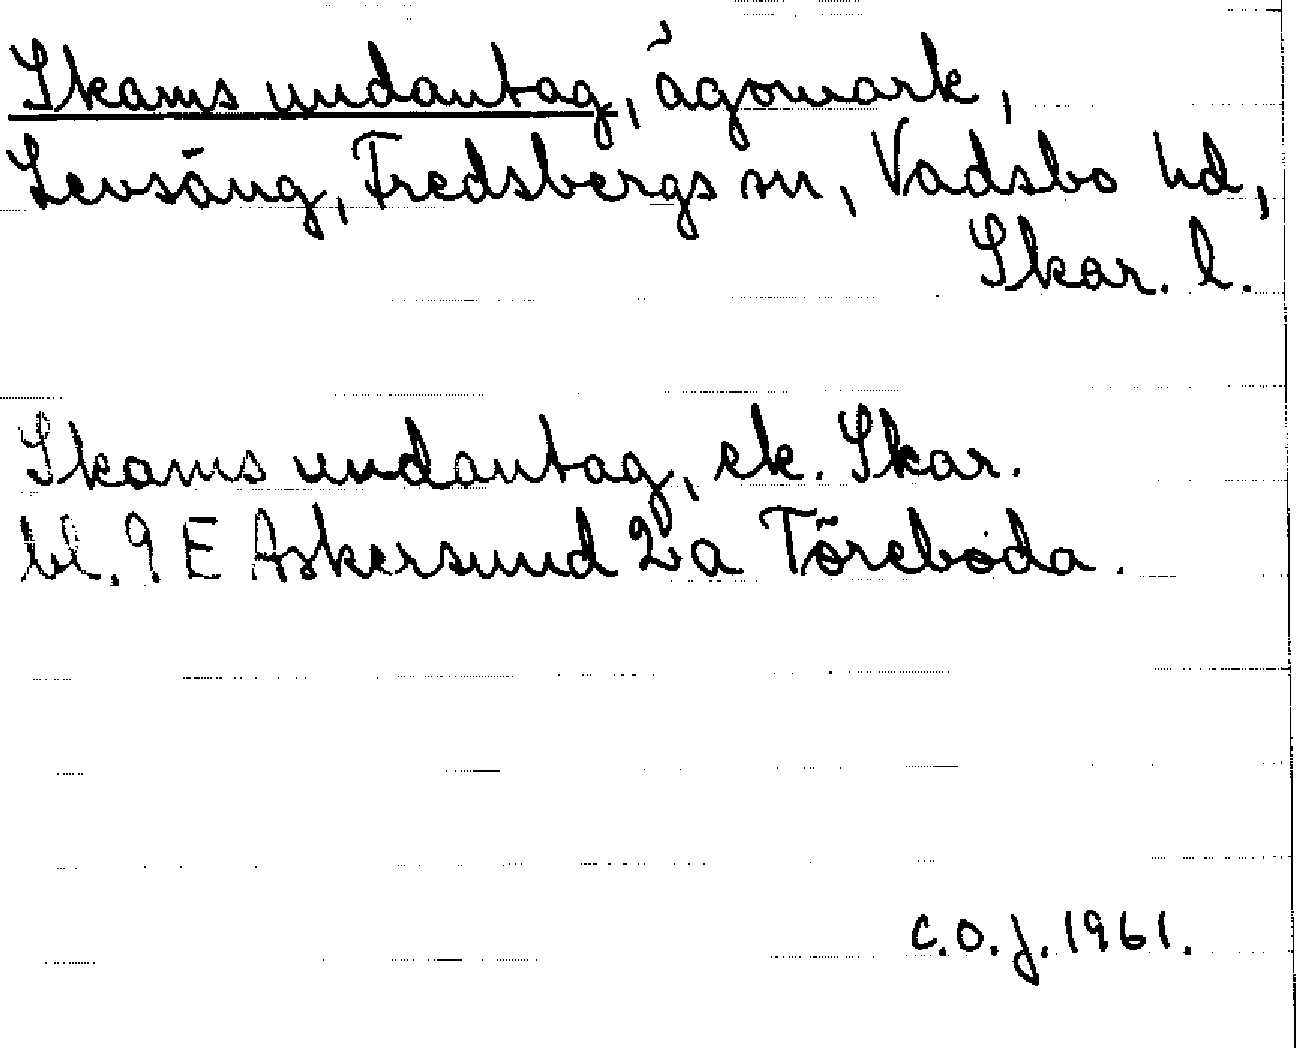 Skams undantag, ägomark,
Levsäng, Fredsbergs sn, Vadsbo hd,
Skar. l.
Skams undantag, ek. Skar.
bl. 9 E Askersund 2a Töreboda.
C.O.J. 1961.